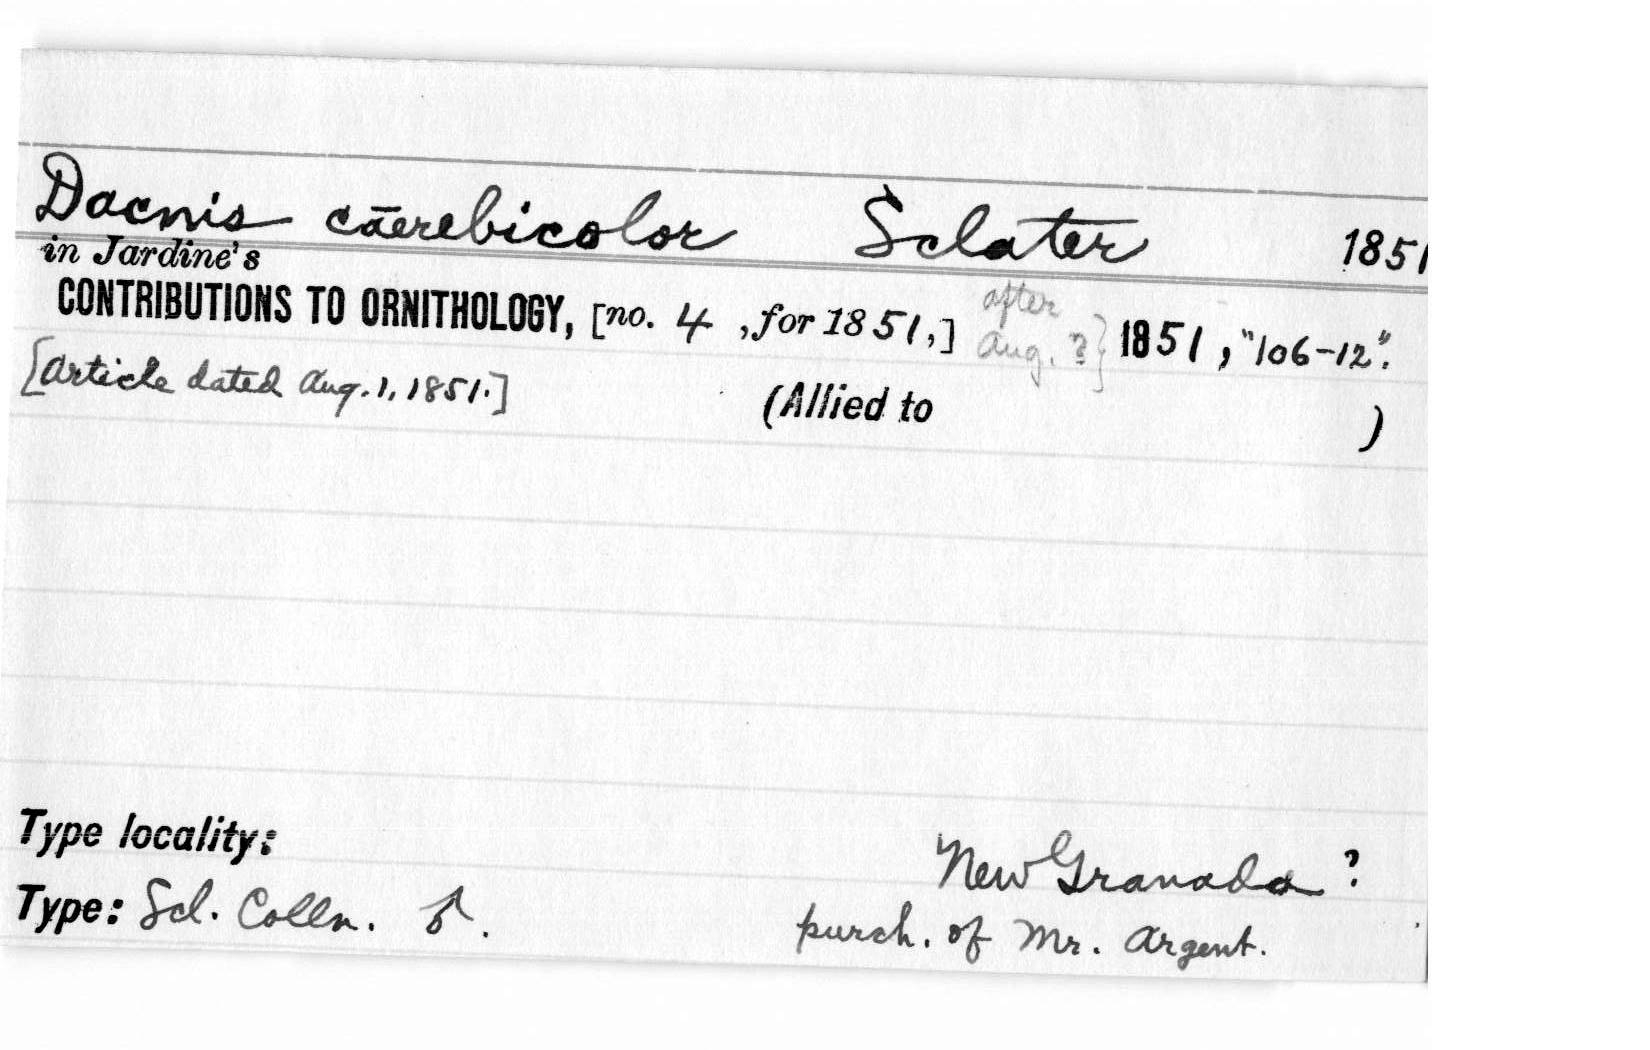 Dacnis cāerebicolor Sclater 1851
in Jardine's
CONTRIBUTIONS TO ORNITHOLOGY, [no. 4 , for 1851,] after Aug. ?} 1851 , "106-12".
[Article dated Aug. 1, 1851.] (Allied to )
Type locality: New Granada ?
Type: Scl. Colln. ♂. purch. of Mr. Argent.